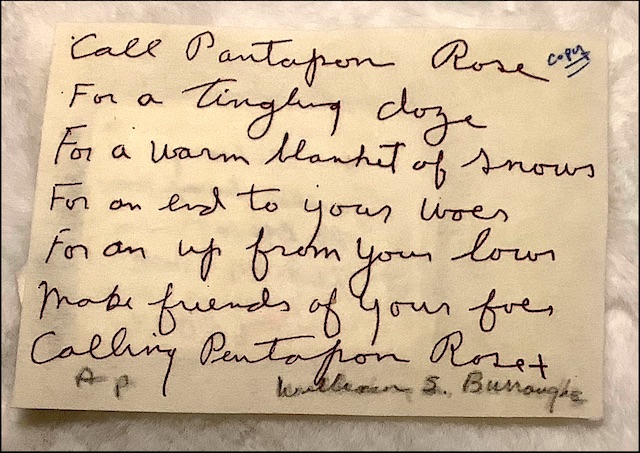 Call Pantapon Rose copy
For a tingling doze
For a warm blanket of snows
For an end to your woes
For an up from your lows
Make friends of your foes
Calling Pentapon Rose +
A p William S. Burroughs